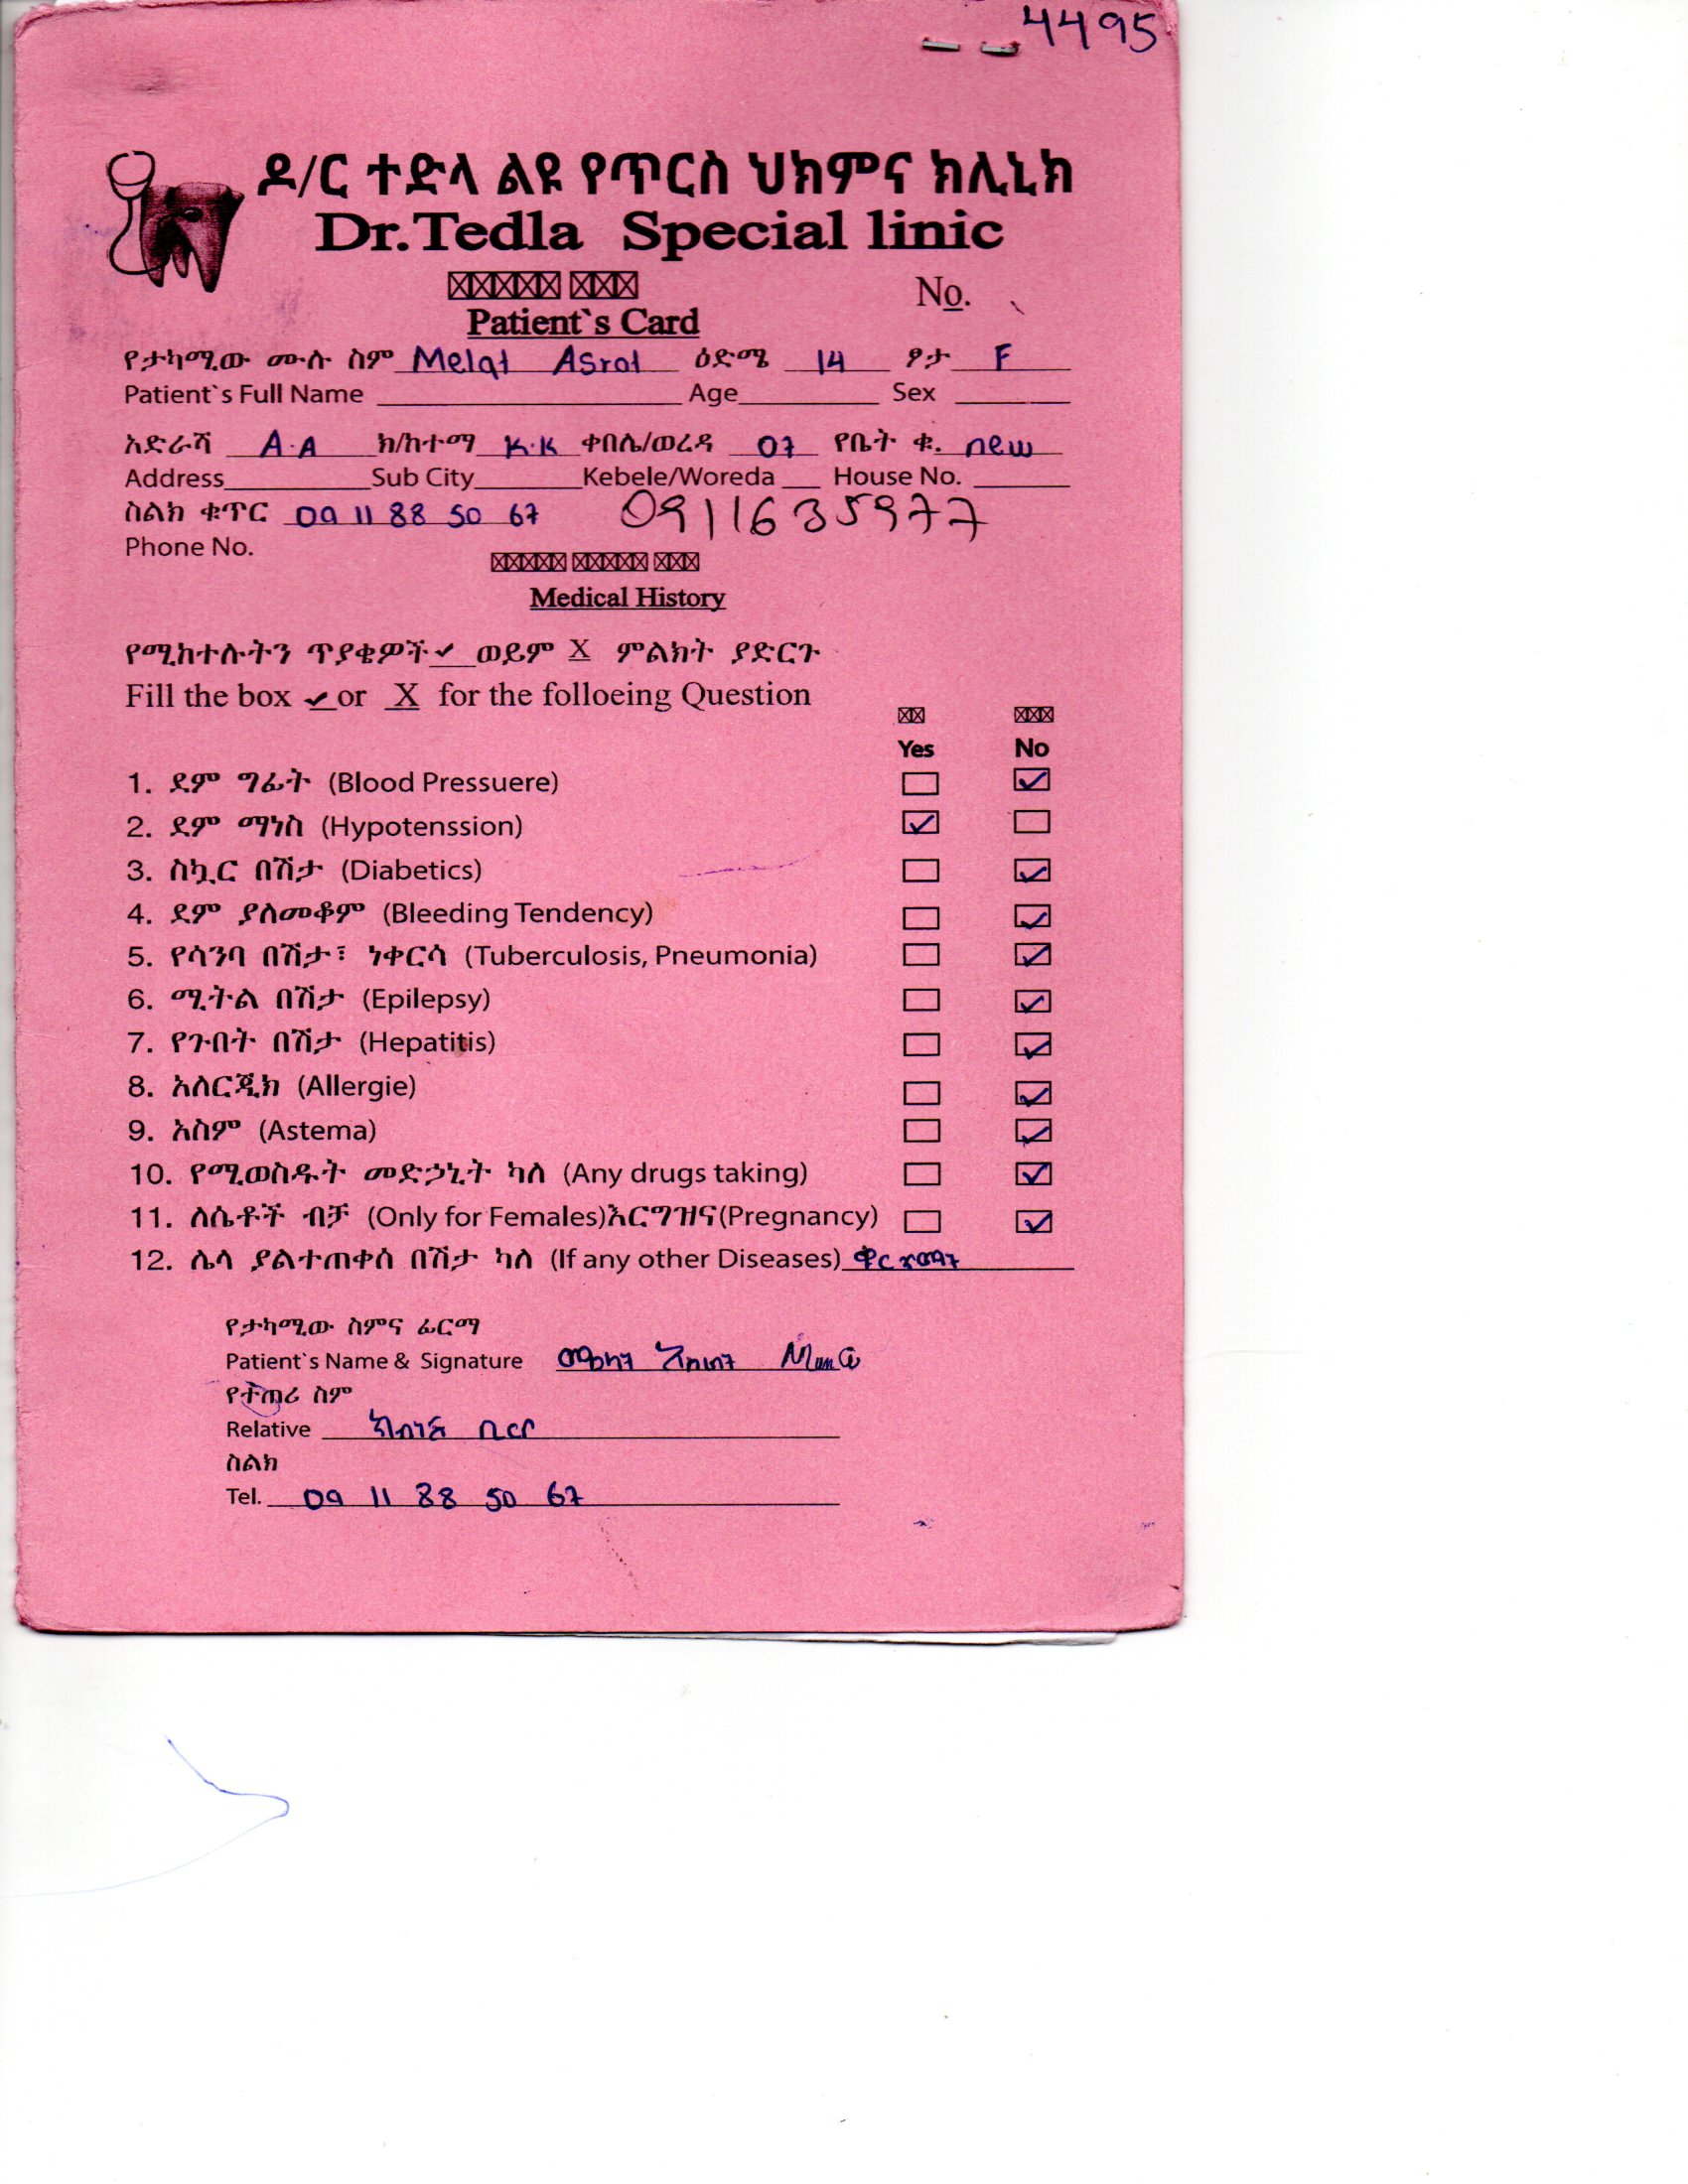 4495
ዶ/ር ተድላ ልዩ የጥርስ ህክምና ክሊኒክ
Dr.Tedla Special linic
No.
Patient`s Card
የታካሚው ሙሉ ስም Melat Asrat ዕድሜ 14 ፆታ F
Patient`s Full Name Age Sex
አድራሻ A.A ክ/ከተማ K.K ቀበሌ/ወረዳ 07 የቤት ቁ. new
Address Sub City Kebele/Woreda House No.
ስልክ ቁጥር 09 11 88 50 67 0911635977
Phone No.
Medical History
የሚከተሉትን ጥያቄዎች ✓ ወይም X ምልክት ያድርጉ
Fill the box ✓ or X for the folloeing Question
Yes No
1. ደም ግፊት (Blood Pressuere) ☐ ☑
2. ደም ማነስ (Hypotenssion) ☑ ☐
3. ስኳር በሽታ (Diabetics) ☐ ☑
4. ደም ያለመቆም (Bleeding Tendency) ☐ ☑
5. የሳንባ በሽታ፣ ነቀርሳ (Tuberculosis, Pneumonia) ☐ ☑
6. ሚትል በሽታ (Epilepsy) ☐ ☑
7. የጉበት በሽታ (Hepatitis) ☐ ☑
8. አለርጂክ (Allergie) ☐ ☑
9. አስም (Astema) ☐ ☑
10. የሚወስዱት መድኃኒት ካለ (Any drugs taking) ☐ ☑
11. ለሴቶች ብቻ (Only for Females)እርግዝና(Pregnancy) ☐ ☑
12. ሌላ ያልተጠቀሰ በሽታ ካለ (If any other Diseases)
የታካሚው ስምና ፊርማ
Patient`s Name & Signature
የተጠሪ ስም
Relative
ስልክ
Tel. 09 11 88 50 67